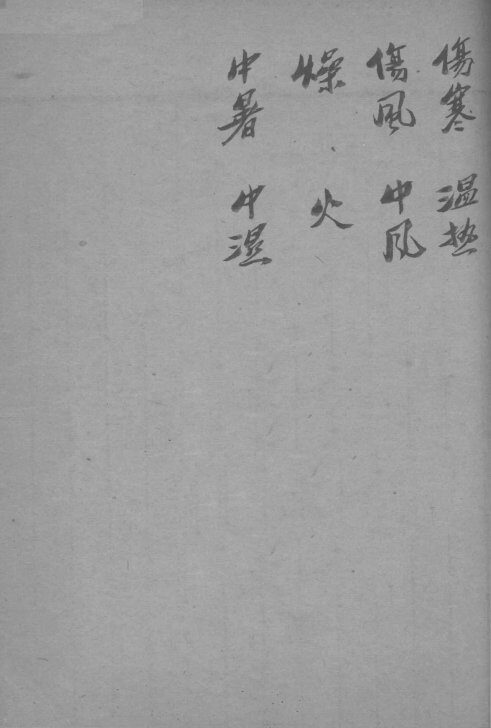 傷寒 温热
傷風 中风
燥 火
中暑 中濕